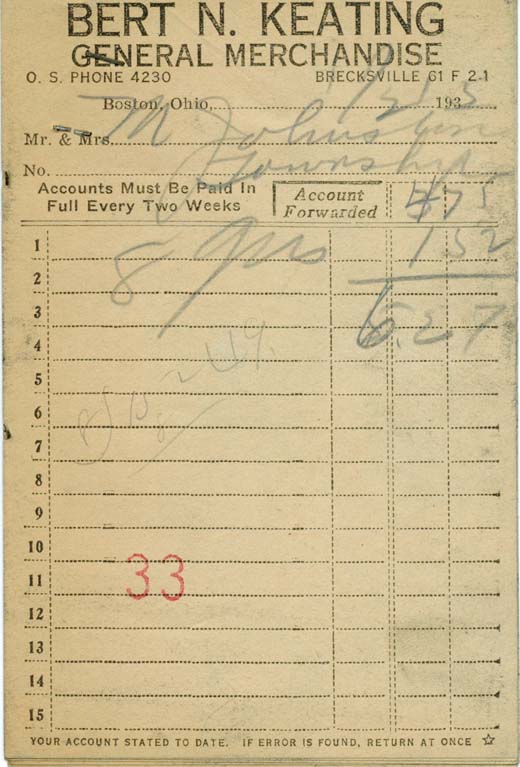 BERT N. KEATING
GENERAL MERCHANDISE
O. S. PHONE 4230 BRECKSVILLE 61 F 2 1
Boston, Ohio, 193
Mr. & Mrs. M Johnston
No. Township
Accounts Must Be Paid In
Full Every Two Weeks
Account
Forwarded
4 75
1 8 gas 1 52
2
3 6.27
4
5
6
7
8
9
10
11 33
12
13
14
15
YOUR ACCOUNT STATED TO DATE. IF ERROR IS FOUND, RETURN AT ONCE